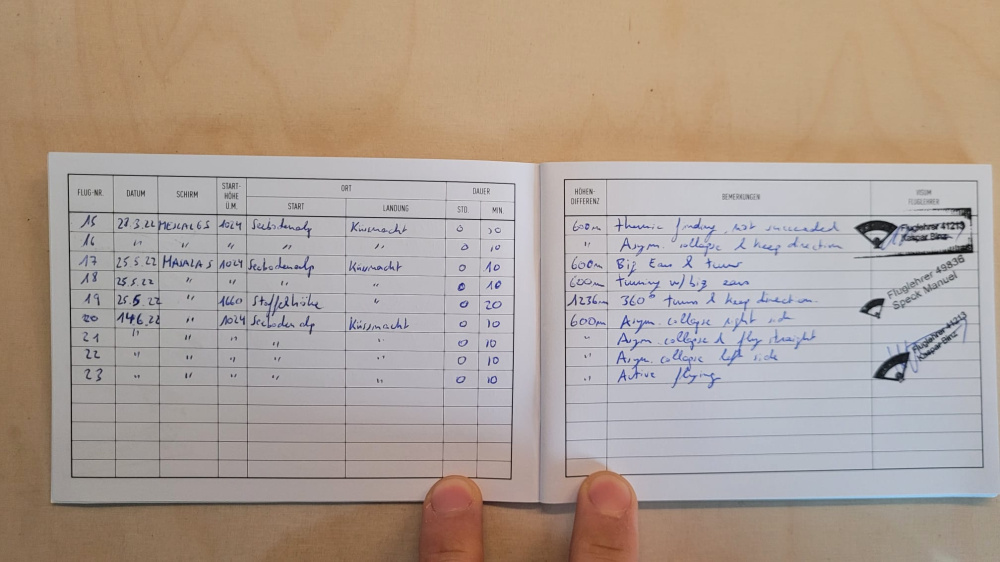 FLUG-NR. DATUM SCHIRM START-HÖHE Ü.M. ORT DAUER
START LANDUNG STD. MIN.
HÖHEN-DIFFERENZ BEMERKUNGEN VISUM FLUGLEHRER
15 28.3.22 1024 Seebodenalp Küssnacht 0 10 600m thermic finding, not succeeded
16 " " " " " 0 10 " Asym. collapse & keep direction
17 25.5.22 1024 Seebodenalp Küssnacht 0 10 600m Big Ears & turns
18 25.5.22 " " " " 0 10 600m turning w/ big ears
19 25.5.22 " 1660 Staffelhöhe " 0 20 1236m 360° turns & keep direction.
20 14.6.22 " 1024 Seebodenalp Küssnacht 0 10 600m Asym. collapse right side
21 " " " " 0 10 " Asym. collapse & fly straight
22 " " " " 0 10 " Asym. collapse left side
23 " " " " " 0 10 " Active flying
Fluglehrer 41213
Kaspar Binz
Fluglehrer 49836
Speck Manuel
Fluglehrer 41213
Kaspar Binz